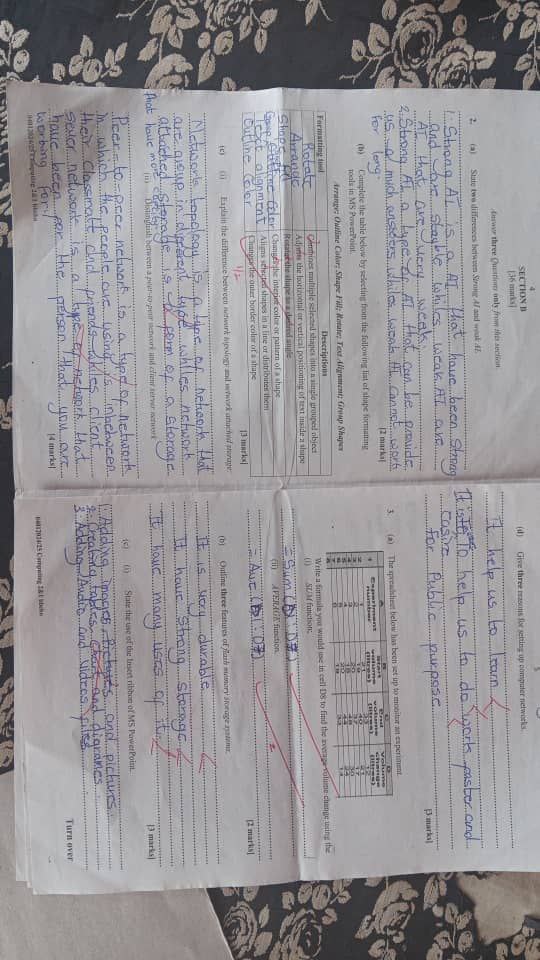 4
SECTION B
[36 marks]
Answer three Questions only from this section.
2. (a) State two differences between Strong AI and weak AI.
1. Strong AI is a AI that have been Strong
and are stayble whiles weak AI are
AI that are very weak.
2. Strong AI a type of AI that can be provide
us a much answers whiles weak AI cannot work
for long.
[2 marks]
(b) Complete the table below by selecting from the following list of shape formatting
tools in MS PowerPoint.
Arrange; Outline Color; Shape Fill; Rotate; Text Alignment; Group Shapes
Formatting tool Descriptions
Rotate Combines multiple selected shapes into a single grouped object
Arrange Adjusts the horizontal or vertical positioning of text inside a shape
Shape fill Rotates the shape to a desired angle
Outline Color Changes the interior color or pattern of a shape
Text alignment Aligns selected shapes in a line or distributes them
Outline Color Changes the outer border color of a shape
1/2
[3 marks]
(c) (i) Explain the difference between network topology and network attached storage.
Network topology is a type of network that
are group in different type whiles network
attached storage is a form of a storage
that have more
(ii) Distinguish between a peer-to-peer network and client server network
Peer-to-peer network is a type of network
in which the people are using is inbetween
their Classmate and friends whiles client
sever network is a type of network that
have been for the person that you are
working for.
[4 marks]
04012024/25 Computing 2&1 bhoho
(d) Give three reasons for setting up computer networks.
It help us to learn
It is to To help us to do work faster and
For Public purpose
[3 marks]
3. (a) The spreadsheet below has been set up to monitor an experiment.
A B C D
1 Experiment number Start volume (litres) End volume (litres) Volume change (litres)
Write a formula you would use in cell D8 to find the average volume change using the
(i) SUM function;
= Sum (D1 : D7)
(ii) AVERAGE function.
= Ave (D1 : D7)
2
[2 marks]
(b) Outline three features of flash memory storage systems.
It is very durable
It have Strong Storage
It have many uses of it.
[3 marks]
(c) (i) State the use of the Insert ribbon of MS PowerPoint.
1. Adding images, Pictures and pictures
2. Creating tables, Charts and digrames
3. Adding Audio and Videos files
Turn over
04012024/25 Computing 2&1 bhoho